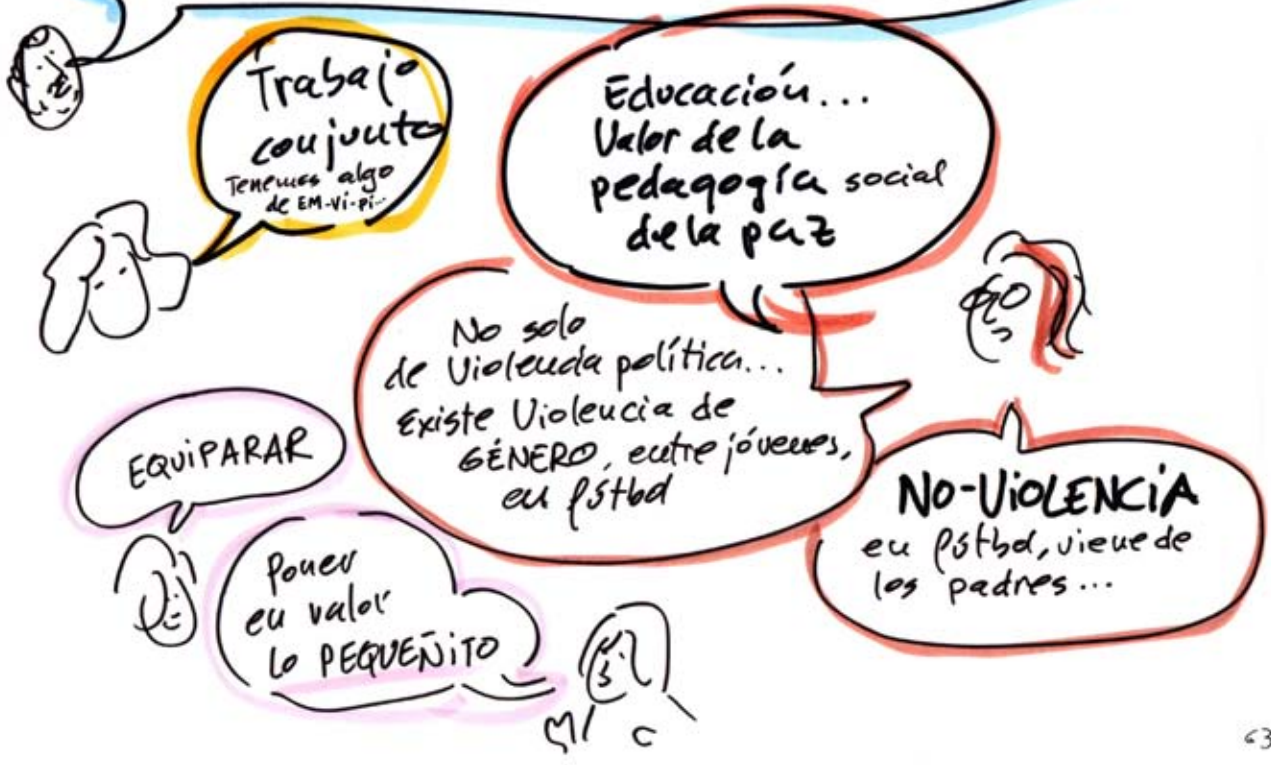 Trabajo
conjunto
Tenemos algo
de EM-Vi-Pi...
Educación...
Valor de la
pedagogía social
de la paz
No solo
de Violencia política...
Existe Violencia de
GÉNERO, entre jóvenes,
en fútbol
EQUiPARAR
Poner
en valor
lo PEQUEÑiTO
NO-ViOLENCiA
en fútbol, viene de
los padres...
63